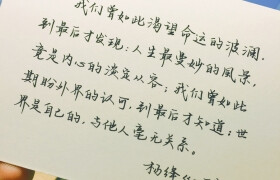 我们曾如此渴望命运的波澜，
到最后才发现：人生最曼妙的风景，
竟是内心的淡定从容；我们曾如此
期盼外界的认可，到最后才知道：世
界是自己的，与他人毫无关系。
杨绛